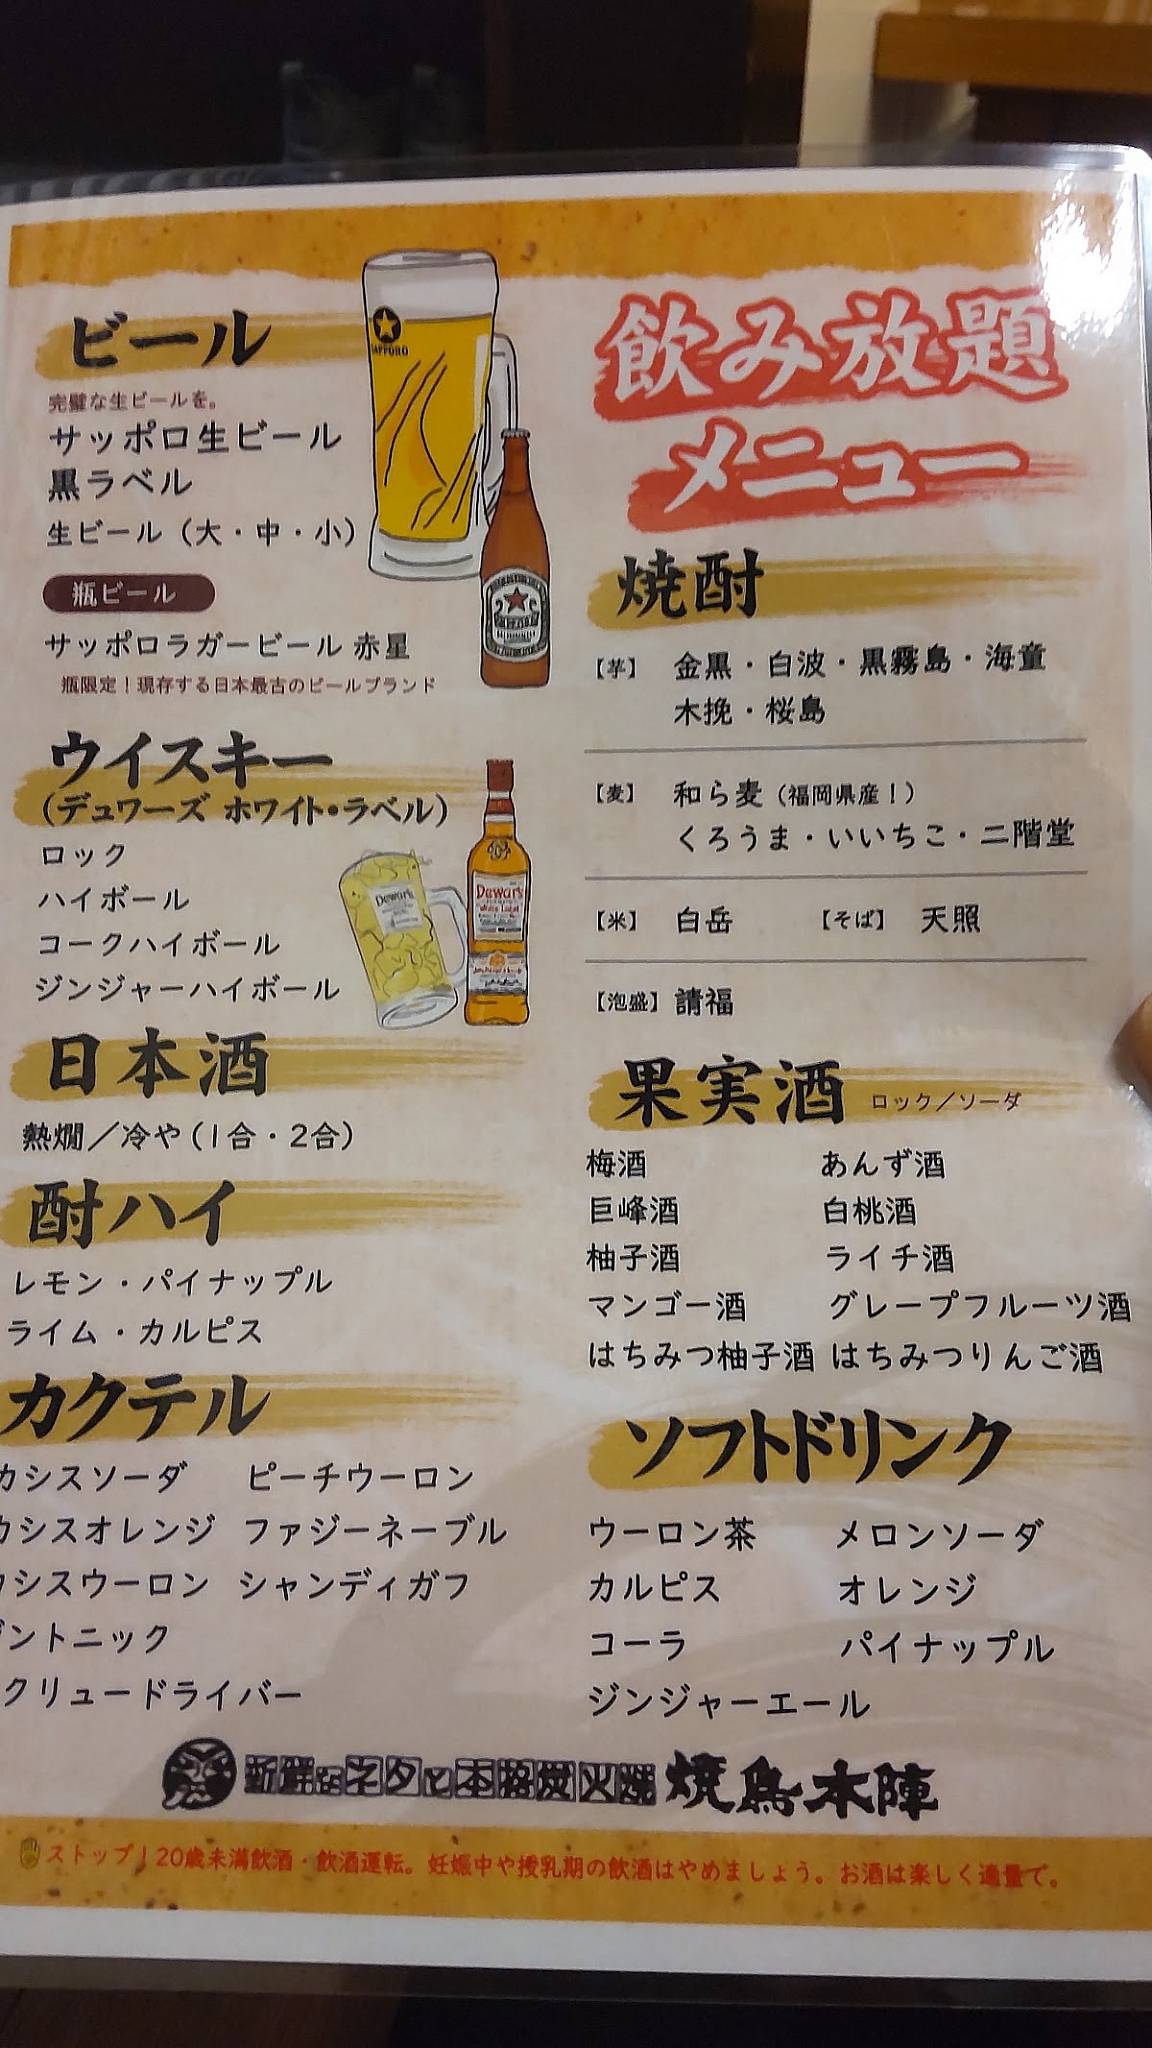 飲み放題
メニュー
ビール
完璧な生ビールを。
サッポロ生ビール
黒ラベル
生ビール（大・中・小）
瓶ビール
サッポロラガービール 赤星
瓶限定！現存する日本最古のビールブランド
SAPPORO
ウイスキー
（デュワーズ ホワイト・ラベル）
ロック
ハイボール
コークハイボール
ジンジャーハイボール
Dewar's
Dewar's
White Label
日本酒
熱燗／冷や（1合・2合）
酎ハイ
レモン・パイナップル
ライム・カルピス
カクテル
カシスソーダ ピーチウーロン
カシスオレンジ ファジーネーブル
カシスウーロン シャンディガフ
ジントニック
クリュードライバー
焼酎
【芋】 金黒・白波・黒霧島・海童
木挽・桜島
【麦】 和ら麦（福岡県産！）
くろうま・いいちこ・二階堂
【米】 白岳 【そば】 天照
【泡盛】 請福
果実酒 ロック／ソーダ
梅酒 あんず酒
巨峰酒 白桃酒
柚子酒 ライチ酒
マンゴー酒 グレープフルーツ酒
はちみつ柚子酒 はちみつりんご酒
ソフトドリンク
ウーロン茶 メロンソーダ
カルピス オレンジ
コーラ パイナップル
ジンジャーエール
新鮮なネタと本格炭火焼 焼鳥本陣
ストップ！20歳未満飲酒・飲酒運転。妊娠中や授乳期の飲酒はやめましょう。お酒は楽しく適量で。